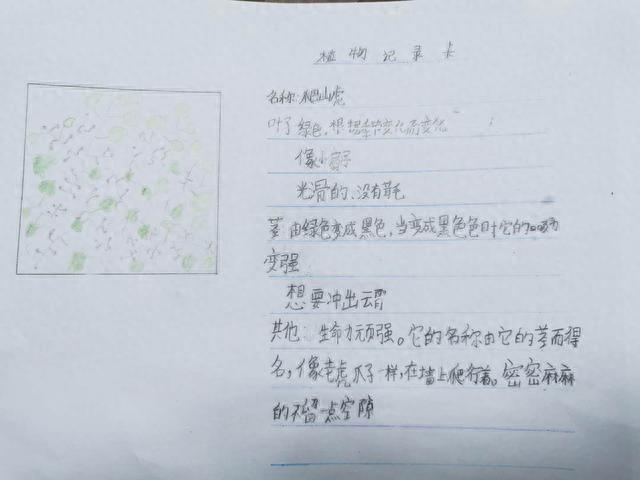 植物记录卡
名称:爬山虎
叶子绿色,根据季节变化而变化
像小扇子
光滑的、没有茸毛
茎:由绿色变成黑色,当变成黑色色时它的吸
变强
想要冲出云霄
其他:生命力顽强。它的名称由它的茎而得
名,像老虎爪子一样,在墙上爬行着。密密麻麻
的不留一点空隙